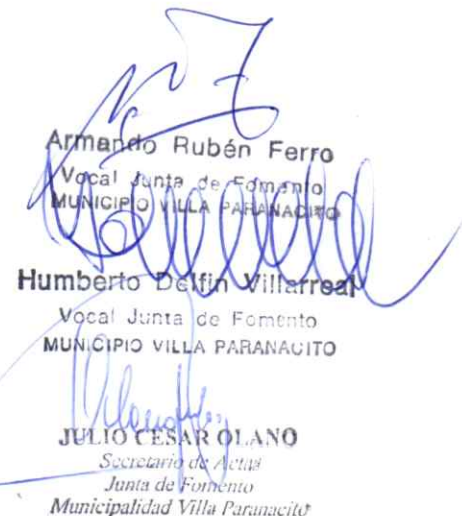 Armando Rubén Ferro
Vocal Junta de Fomento
MUNICIPIO VILLA PARANACITO
Humberto Delfin Villarreal
Vocal Junta de Fomento
MUNICIPIO VILLA PARANACITO
JULIO CESAR OLANO
Secretario de Actas
Junta de Fomento
Municipalidad Villa Paranacito